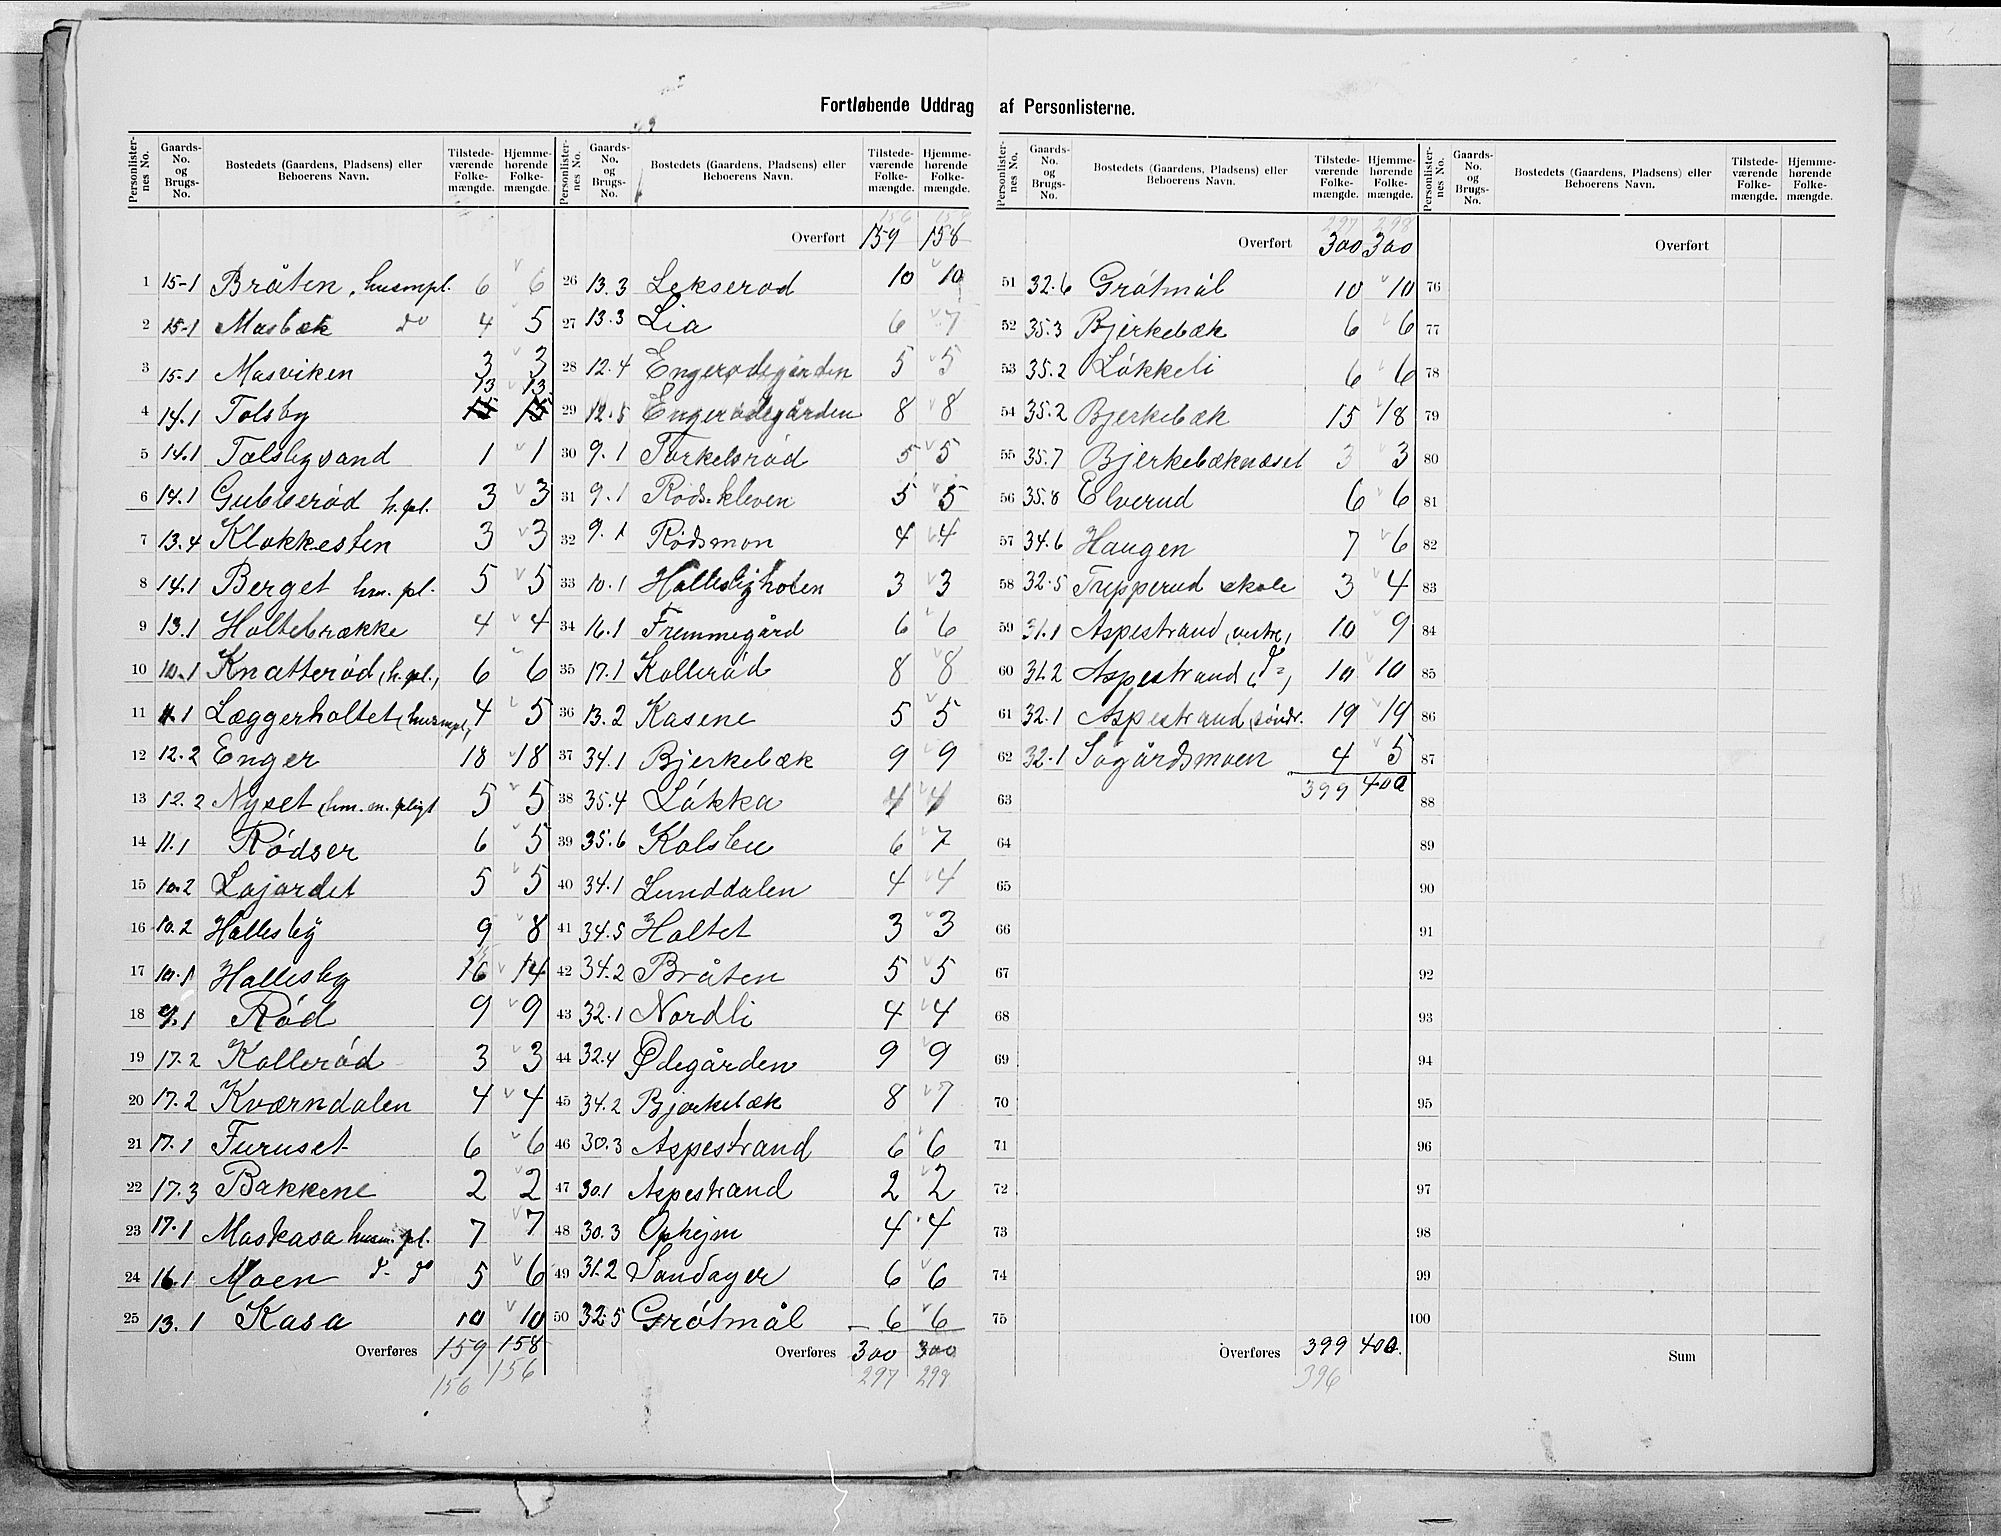 Fortløbende Uddrag af Personlisterne.
Personlisternes No. Gaards-No. og Brugs-No. Bostedets (Gaardens, Pladsens) eller Beboerens Navn. Tilstedeværende Folkemængde. Hjemmehørende Folkemængde.
1 15-1 Bråten, husmpl. 6 6
2 15-1 Masbæk do 4 5
3 15-1 Masviken 3 3
4 14.1 Tolsby 13 13
5 14.1 Tolsbysand 1 1
6 14.1 Gubberød h.pl. 3 3
7 13.4 Klokkesten 3 3
8 14.1 Berget hm. pl. 5 5
9 13.1 Holtebrække 4 4
10 10.1 Knatterød (h.pl.) 6 6
11 11.1 Læggerholtet (husmpl) 4 5
12 12.2 Enger 18 18
13 12.2 Nyset (hm. m. pligt 5 5
14 11.1 Rødser 6 5
15 10.2 Løjordet 5 5
16 10.2 Hallesby 9 8
17 10.1 Hallesby 16 14
18 9.1 Rød 9 9
19 17.2 Kollerød 3 3
20 17.2 Kværndalen 4 4
21 17.1 Furuset 6 6
22 17.3 Bakkene 2 2
23 17.1 Maskasa husm. pl. 7 7
24 16.1 Moen d- do 5 6
25 13.1 Kasa 10 10
Overføres 159 158
156 156
Personlisternes No. Gaards-No. og Brugs-No. Bostedets (Gaardens, Pladsens) eller Beboerens Navn. Tilstedeværende Folkemængde. Hjemmehørende Folkemængde.
156 156
Overført 159 158
26 13.3 Lekserød 10 10
27 13.3 Lia 6 7
28 12.4 Engerødegården 5 5
29 12.5 Engerødegården 8 8
30 9.1 Torkelsrød 5 5
31 9.1 Røds-kleven 5 5
32 9.1 Rødsmon 4 4
33 10.1 Hallesbyholen 3 3
34 16.1 Fremmegård 6 6
35 17.1 Kollerød 8 8
36 13.2 Kasene 5 5
37 34.1 Bjerkebæk 9 9
38 35.4 Løkka 4 4
39 35.6 Kolsbu 6 7
40 34.1 Lunddalen 4 4
41 34.5 Holtet 3 3
42 34.2 Bråten 5 5
43 32.1 Nordli 4 4
44 32.4 Ødegården 9 9
45 34.2 Bjerkebæk 8 7
46 30.3 Aspestrand 6 6
47 30.1 Aspestrand 2 2
48 30.3 Ophejm 4 4
49 31.2 Sandager 6 6
50 32.5 Grøtmål 6 6
Overføres 300 300
297 298
Personlisternes No. Gaards-No. og Brugs-No. Bostedets (Gaardens, Pladsens) eller Beboerens Navn. Tilstedeværende Folkemængde. Hjemmehørende Folkemængde.
297 298
Overført 300 300
51 32.6 Grøtmål 10 10
52 35.3 Bjerkebæk 6 6
53 35.2 Løkkeli 6 6
54 35.2 Bjerkebæk 15 18
55 35.7 Bjerkebæknæset 3 3
56 35.8 Elverud 6 6
57 34.6 Haugen 7 6
58 32.5 Tripperud skole 3 4
59 31.1 Aspestrand (vestre) 10 9
60 31.2 Aspestrand (do) 10 10
61 32.1 Aspestrand (søndr. 19 19
62 32.1 Søgårdsmoen 4 5
63 399 400
64
65
66
67
68
69
70
71
72
73
74
75
Overføres 399 400.
396
Personlisternes No. Gaards-No. og Brugs-No. Bostedets (Gaardens, Pladsens) eller Beboerens Navn. Tilstedeværende Folkemængde. Hjemmehørende Folkemængde.
Overført
76
77
78
79
80
81
82
83
84
85
86
87
88
89
90
91
92
93
94
95
96
97
98
99
100
Sum